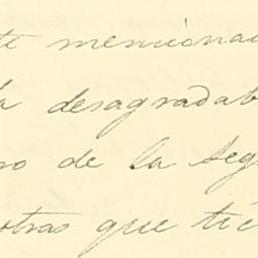 te mencionad
la desagradab
no de la seg
otras que tie